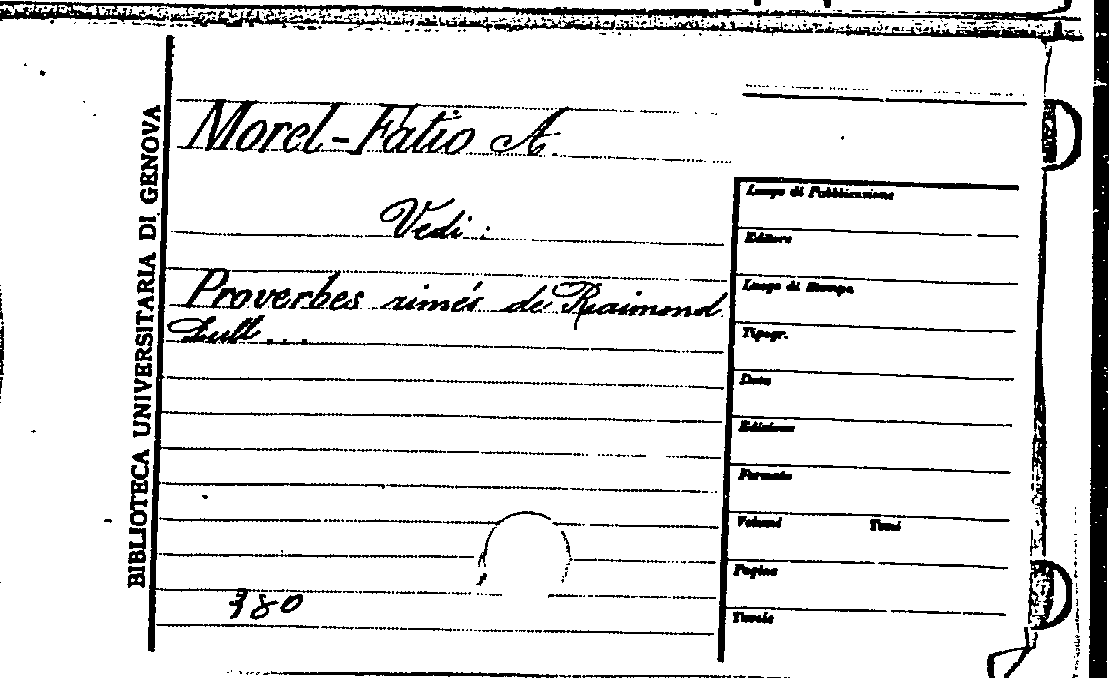 BIBLIOTECA UNIVERSITARIA DI GENOVA
Morel-Fatio A.
Vedi:
Proverbes rimés de Raimond
Lull...
380
Luogo di Pubblicazione
Editore
Luogo di Stampa
Tipogr.
Data
Edizione
Formato
Volumi Tomi
Pagine
Tavole